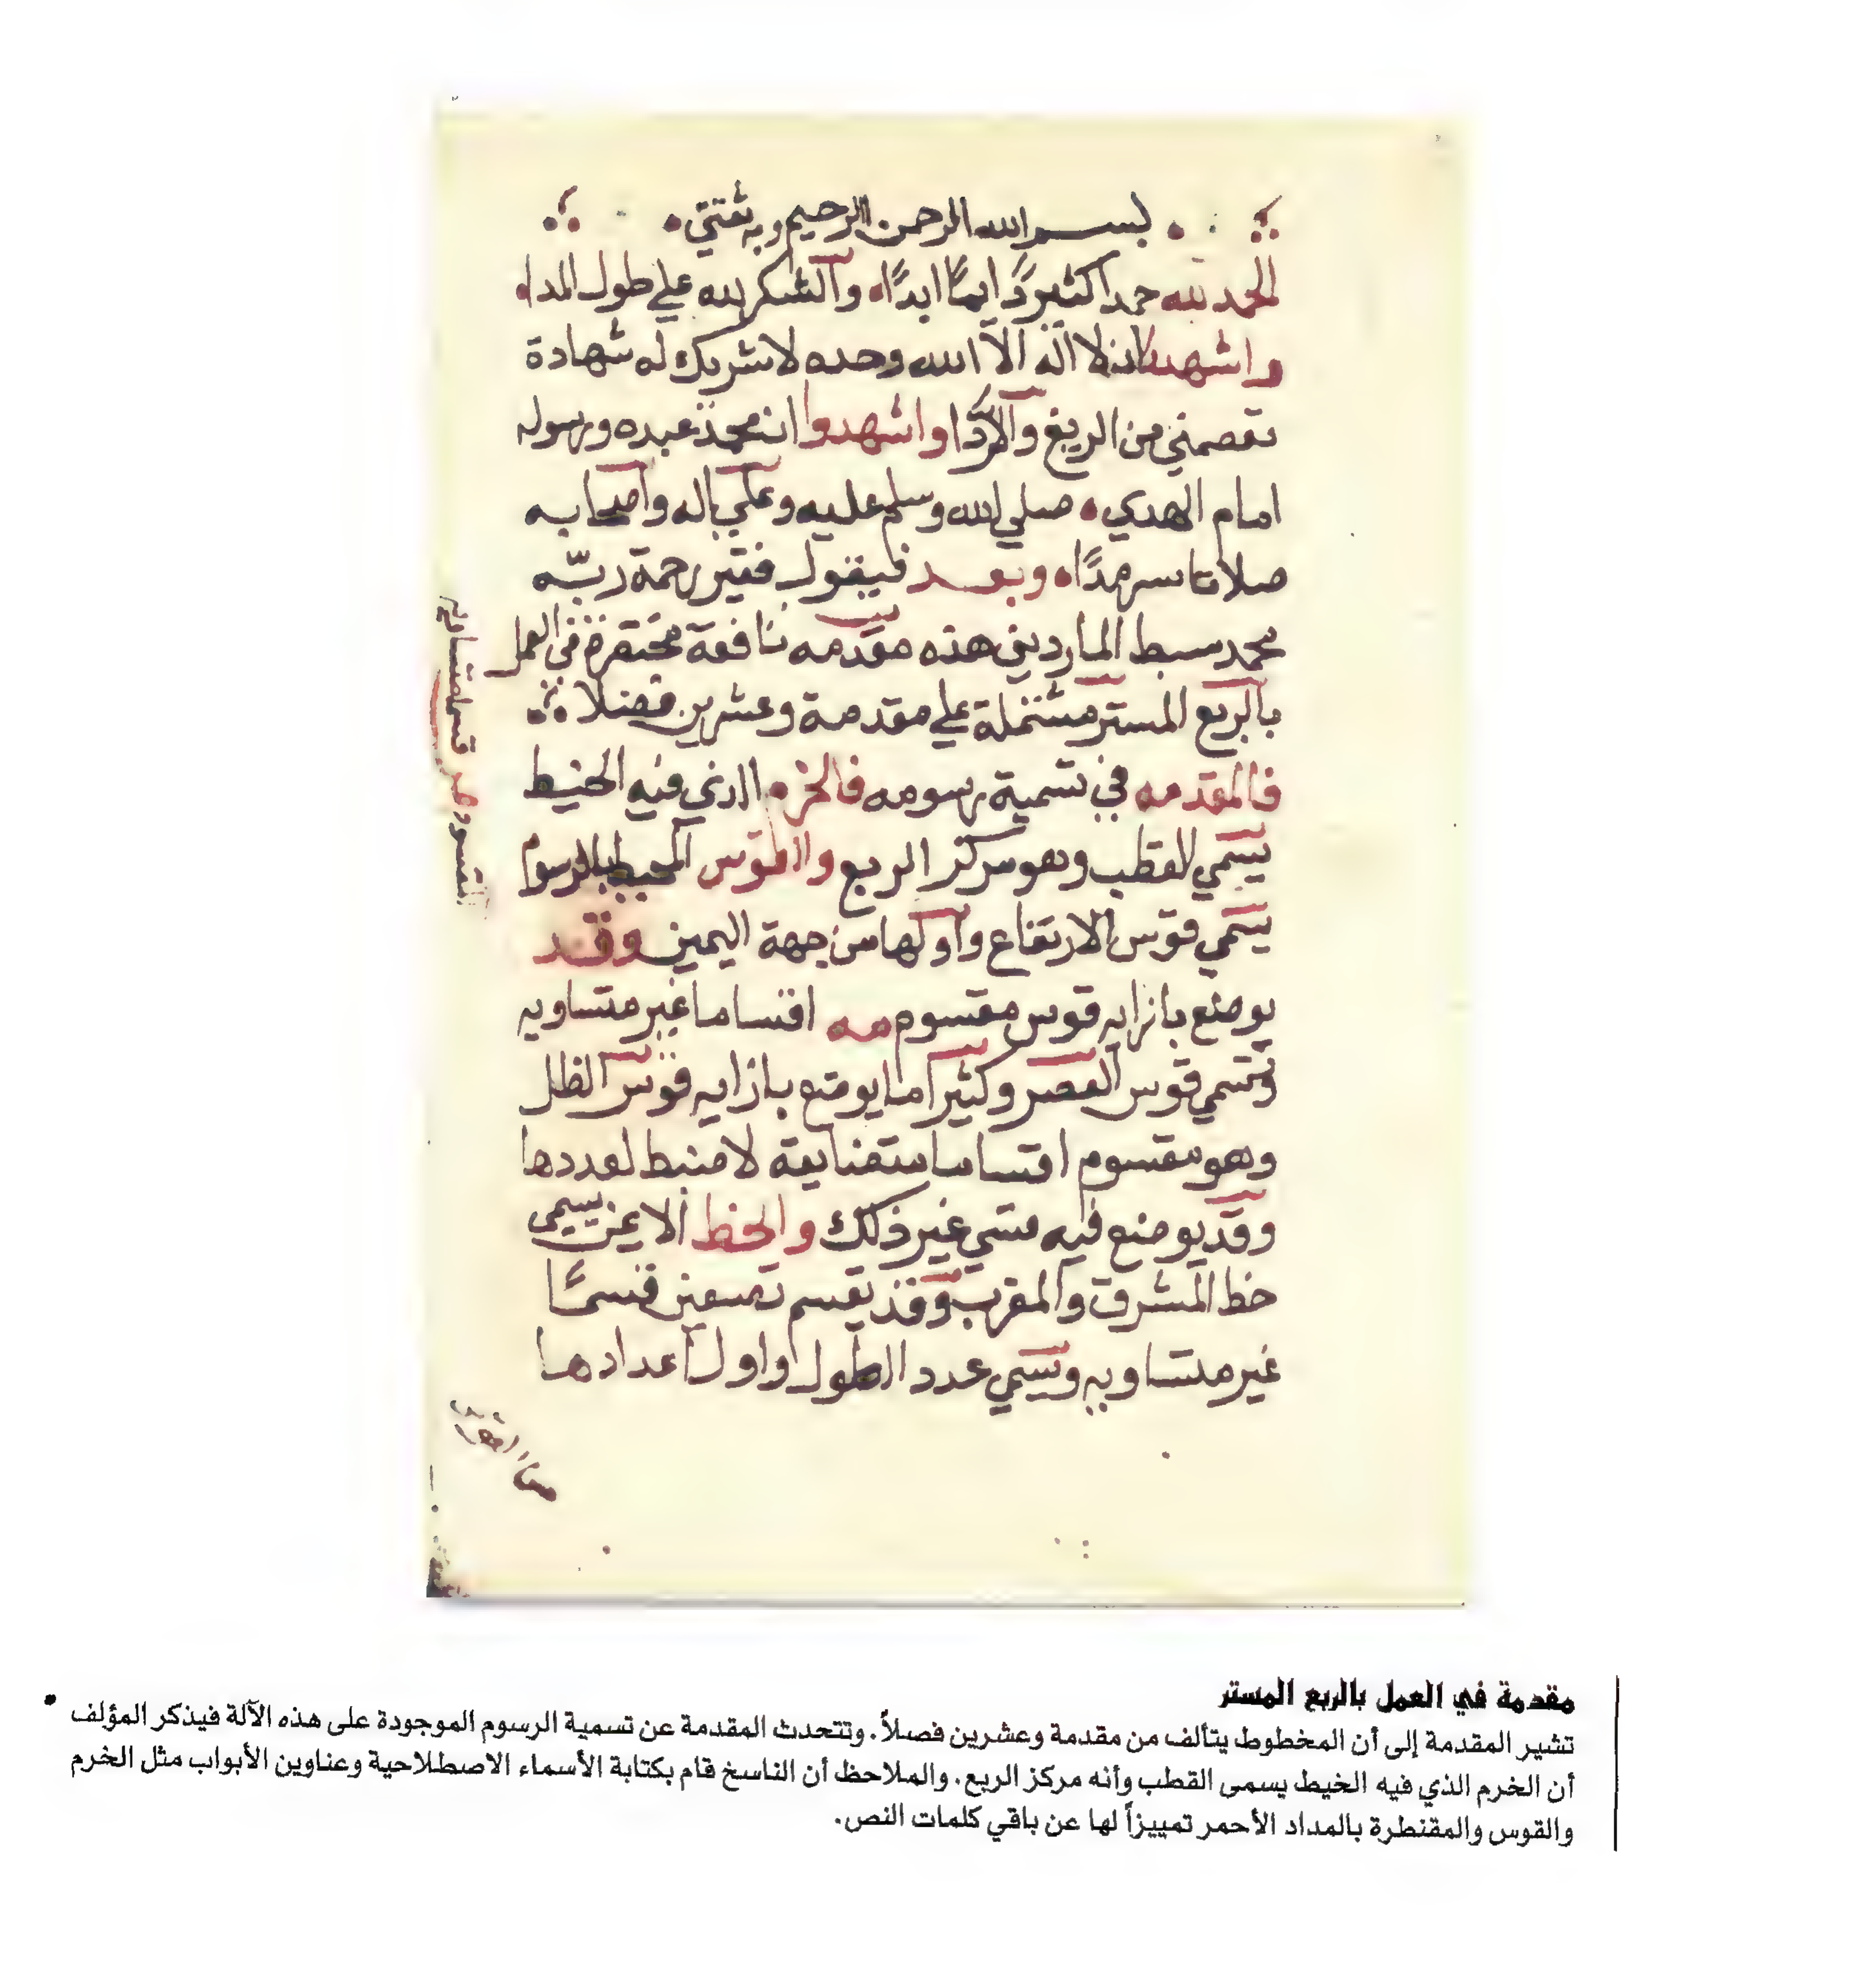 بسم الله الرحمن الرحيم وبه ثقتي
الحمد لله حمدا كثيرا دايما ابدًا والشكر لله علي طول المدا
واشهد ان لا اله الا الله وحده لا شريك له شهادة
تعصمني من الزيغ والردا واشهدوا ان محمد عبده ورسوله
امام الهدي صلي الله وسلم عليه وعلي اله واصحابه
صلاتا سرمدًا وبعد فيقول فقير رحمة ربّه
محمد سبط المارديني هذه مقدمه نافعة مختصرة في العمل
بالربع المستر مشتملة علي مقدمة وعشرين فصلا
فالمقدمه في تسمية رسومه فالخرم الذي فيه الخيط
يسمي القطب وهو مركز الربع والقوس المحيط بالرسوم
يسمي قوس الارتفاع واولها من جهة اليمين وقد
يوضع بازايه قوس مقسوم اقساما غير متساويه
وتسمي قوس العصر وكثيرا ما يوضع بازايه قوس الظل
وهو مقسوم اقساما متضايقة لا ضبط لعددها
وقد يوضع فيه شي غير ذلك والخط الايمن يسمي
خط المشرق والمغرب وقد يقسم تسعين قسمًا
غير متساويه ويسمي عدد الطول واول اعدادها
مقدمة في العمل بالربع المستر
تشير المقدمة إلى أن المخطوط يتألف من مقدمة وعشرين فصلاً. وتتحدث المقدمة عن تسمية الرسوم الموجودة على هذه الآلة فيذكر المؤلف
أن الخرم الذي فيه الخيط يسمى القطب وأنه مركز الربع. والملاحظ أن الناسخ قام بكتابة الأسماء الاصطلاحية وعناوين الأبواب مثل الخرم
والقوس والمقنطرة بالمداد الأحمر تمييزاً لها عن باقي كلمات النص.